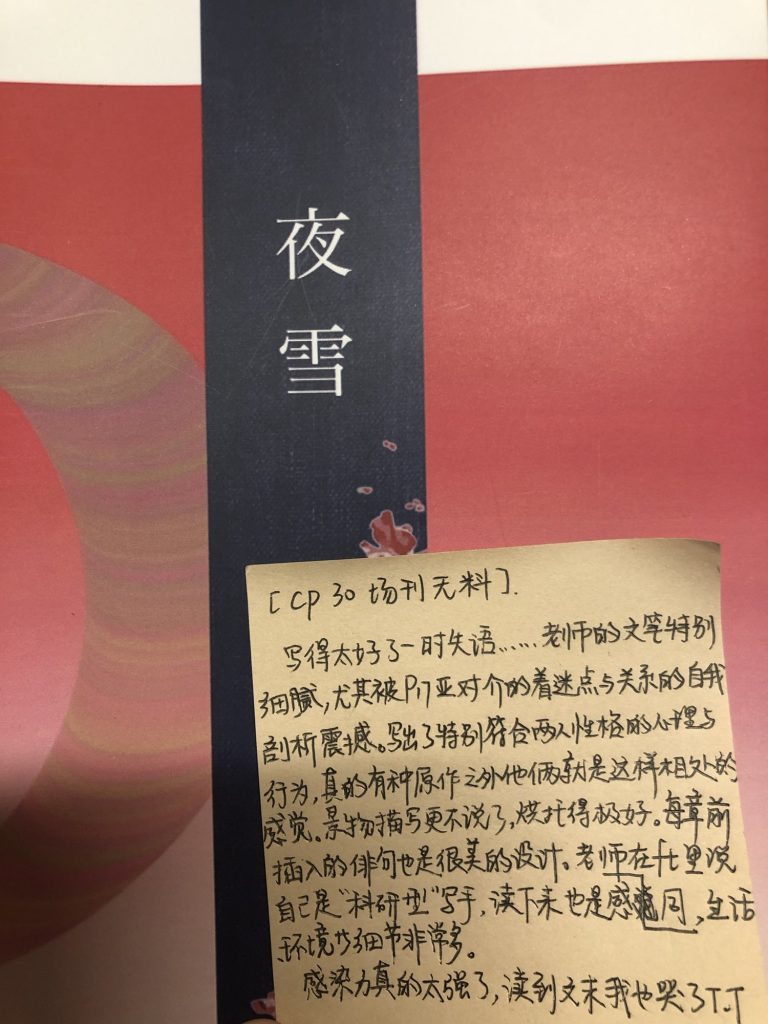 夜雪
[cp 30 场刊无料].
写得太好了一时失语……老师的文笔特别
细腻,尤其被P17亚对介的着迷点与关系的自我
剖析震撼。写出了特别符合两人性格的心理与
行为,真的有种原作之外他俩就是这样相处的
感觉。景物描写更不说了,烘托得极好。每章前
插入的俳句也是很美的设计。老师在ft里说
自己是"科研型"写手,读下来也是感同,生活
环境的细节非常多。
感染力真的太强了,读到文末我也哭了T-T